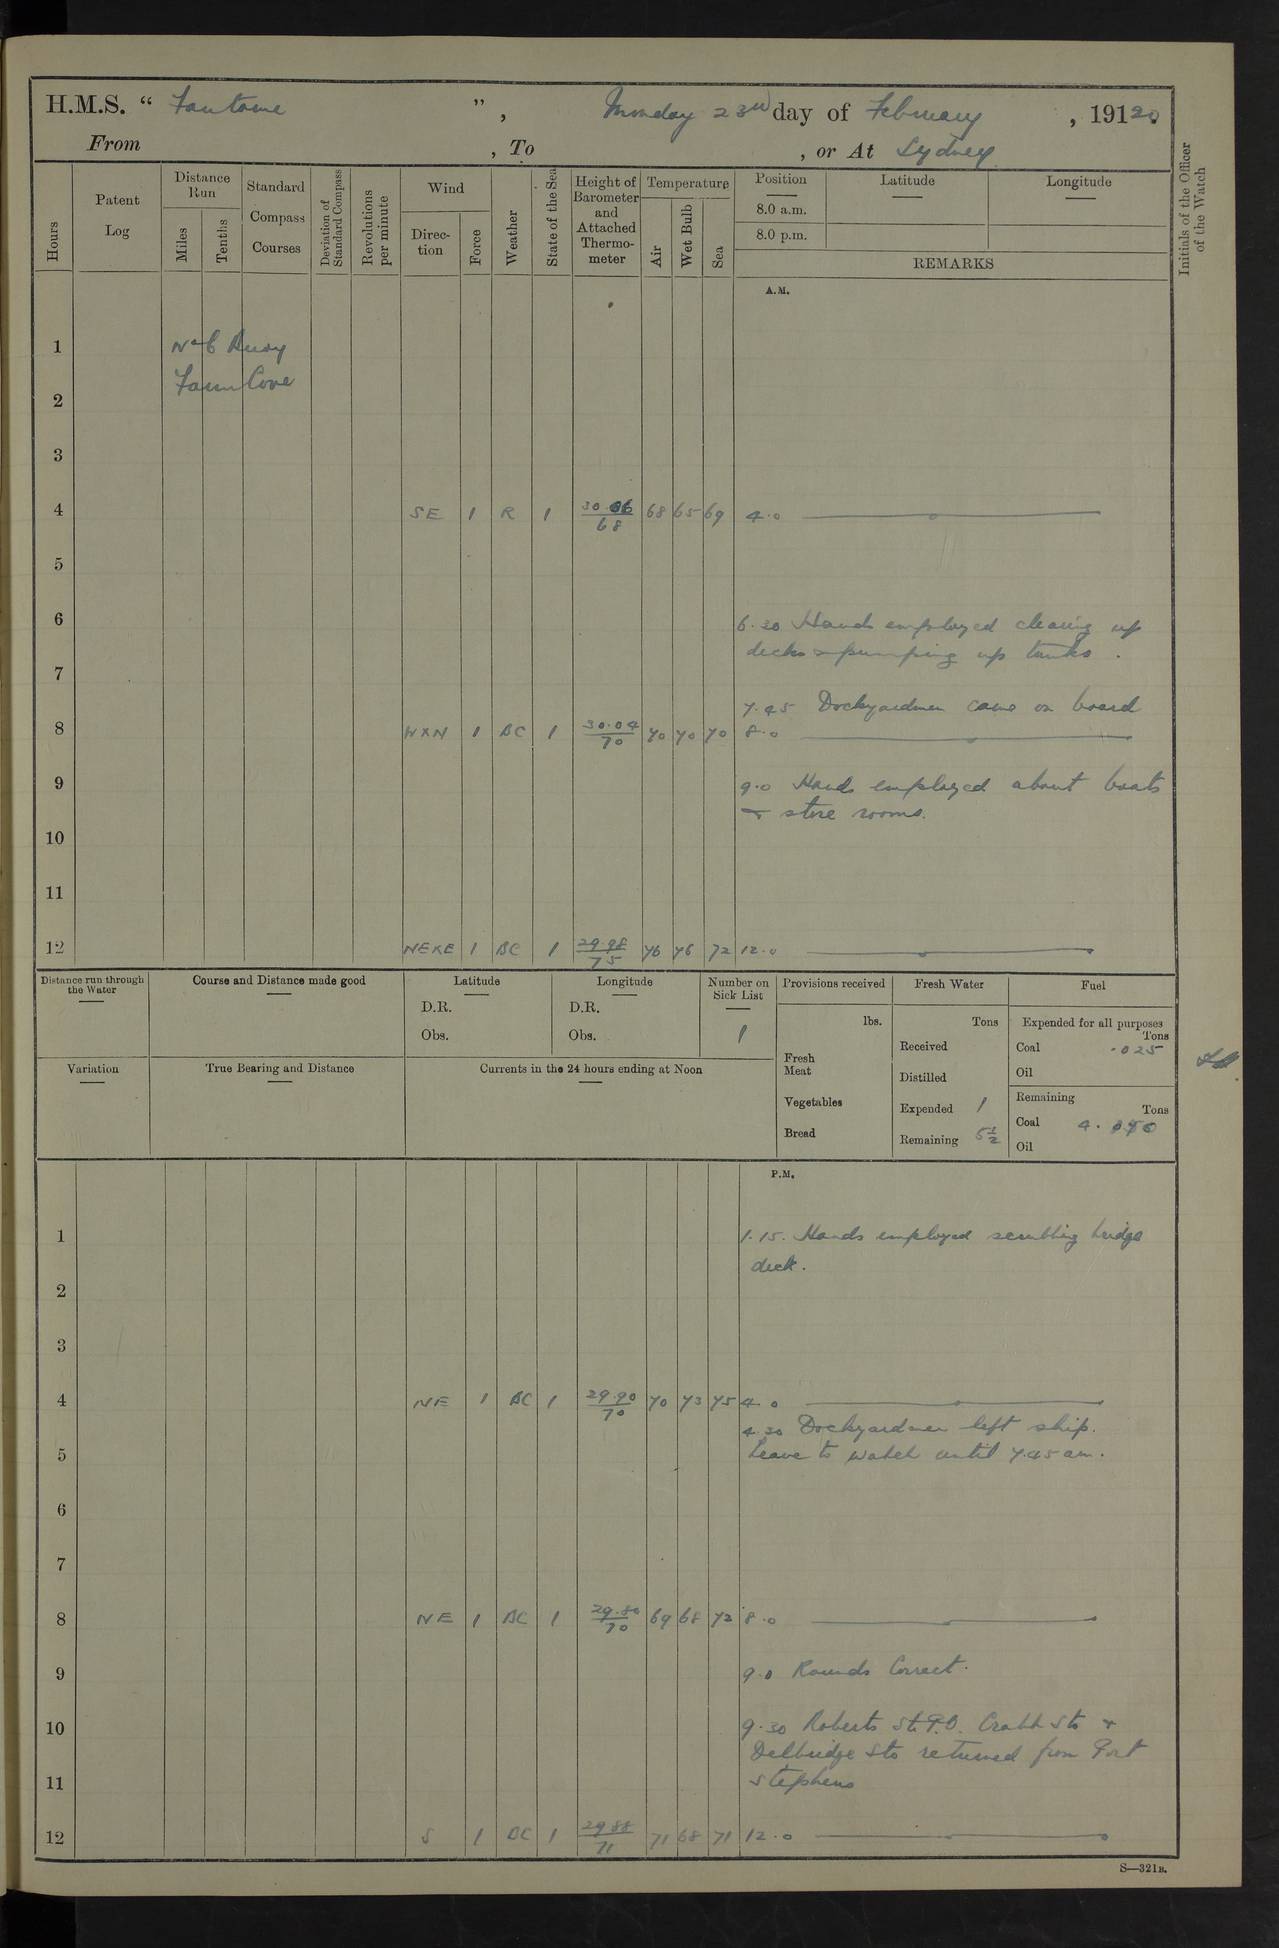 H.M.S. “ Fantome ”, Monday 23rd day of February, 19120.
From , To , or At Sydney
Hours
Patent Log
Distance Run
Miles
Tenths
Standard Compass Courses
Deviation of Standard Compass
Revolutions per minute
Wind
Direc- tion
Force
Weather
State of the Sea
Height of Barometer and Attached Thermo- meter
Temperature
Air
Wet Bulb
Sea
Position
8.0 a.m.
8.0 p.m.
Latitude
Longitude
REMARKS
Initials of the Officer of the Watch
A.M.
1 No 6 Buoy
Farm Cove
2
3
4 SE 1 R 1 30.06/68 68 65 69 4.0
5
6 6.30 Hands employed clearing up
decks & pumping up tanks.
7
7.45 Dockyardmen came on board
8 WXN 1 BC 1 30.04/70 70 70 70 8.0
9 9.0 Hands employed about boats
& store rooms.
10
11
12 NEXE 1 BC 1 29.98/75 76 76 72 12.0
Distance run through the Water
Course and Distance made good
Latitude
D.R.
Obs.
Longitude
D.R.
Obs.
Number on Sick List
1
Provisions received
lbs.
Fresh Meat
Vegetables
Bread
Fresh Water
Tons
Received
Distilled
Expended 1
Remaining 5½
Fuel
Expended for all purposes
Tons
Coal .025
Oil
Remaining
Tons
Coal
Oil
Variation
True Bearing and Distance
Currents in the 24 hours ending at Noon
P.M.
1 1.15. Hands employed scrubbing bridge
deck.
2
3
4 NE 1 BC 1 29.90/70 70 73 75 4.0
4.30 Dockyardmen left ship.
5 Leave to watch until 7.45 am.
6
7
8 NE 1 BC 1 29.80/70 69 68 72 8.0
9 9.0 Rounds Correct.
10 9.30 Roberts St.P.O. Crabb Sto &
Delbridge Sto returned from Port
11 Stephens
12 S 1 BC 1 29.88/71 71 68 71 12.0
S—321B.